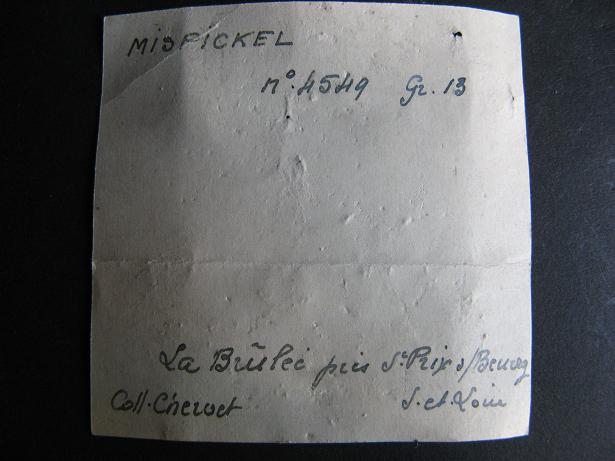 MISPICKEL
n° 4549 Gr. 13
La Brûlée près St Prix s/Beuvray
Coll. Chervet S. et. Loire